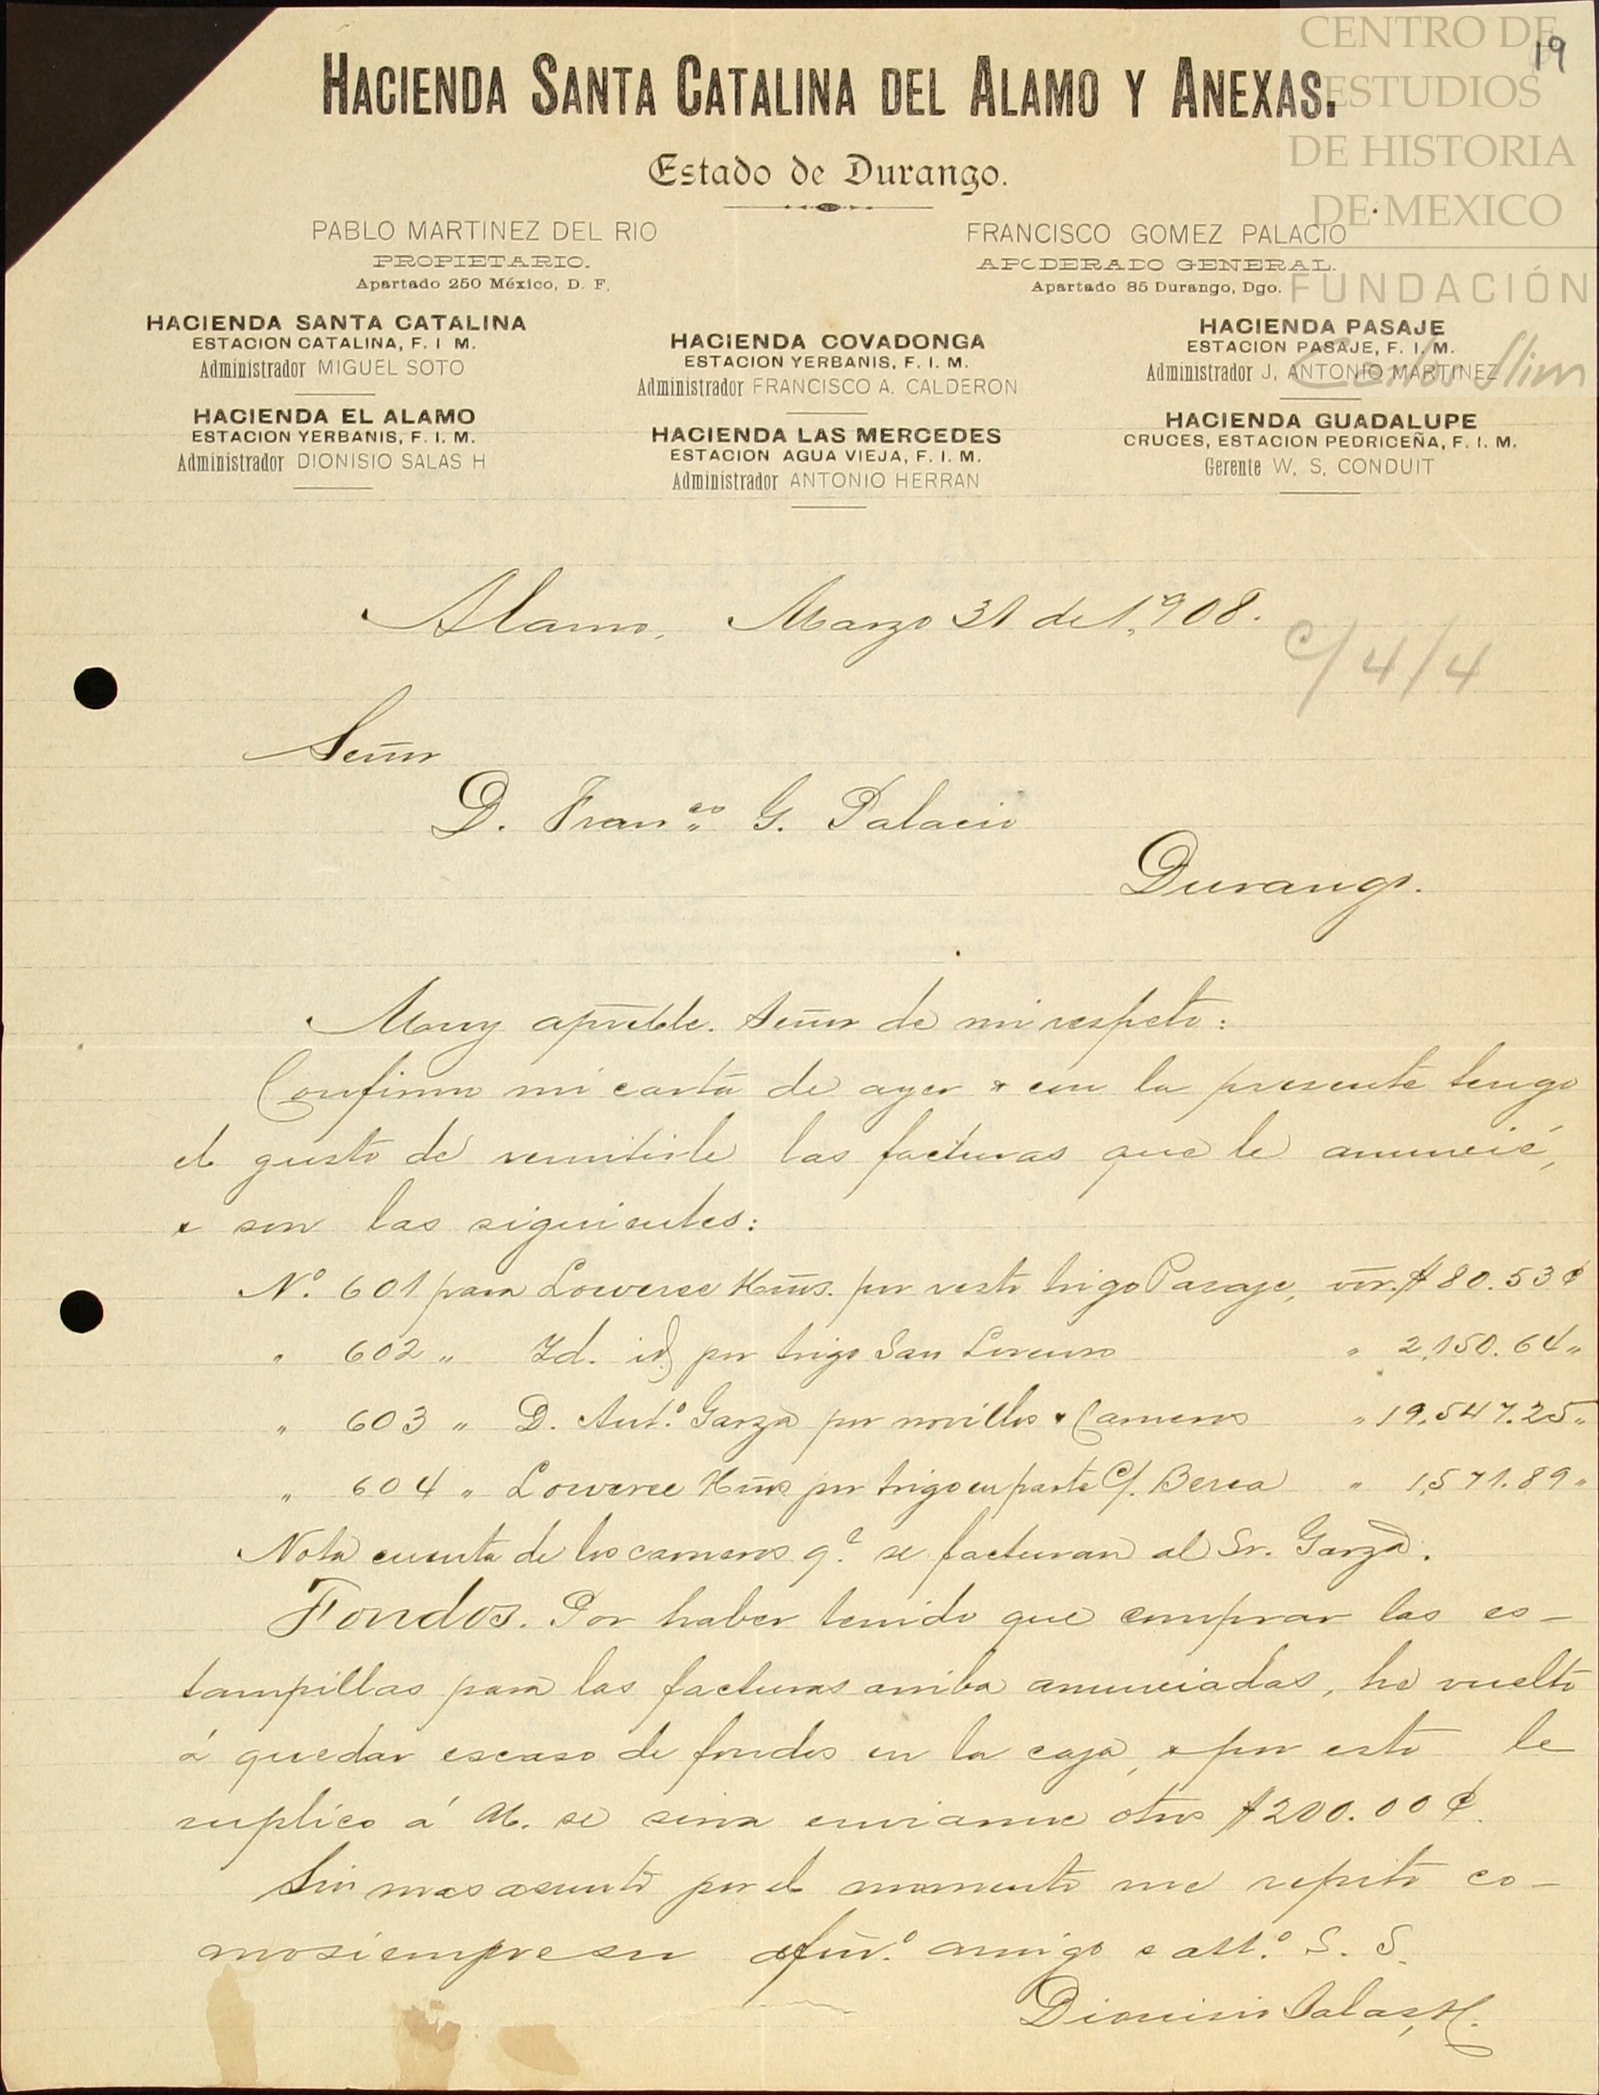 CENTRO DE
ESTUDIOS
DE HISTORIA
DE MEXICO
FUNDACIÓN
Carlos Slim
19
HACIENDA SANTA CATALINA DEL ALAMO Y ANEXAS.
Estado de Durango.
PABLO MARTINEZ DEL RIO
PROPIETARIO.
Apartado 250 México, D. F.
FRANCISCO GOMEZ PALACIO
APODERADO GENERAL.
Apartado 85 Durango, Dgo.
HACIENDA SANTA CATALINA
ESTACION CATALINA, F. I M.
Administrador MIGUEL SOTO
HACIENDA EL ALAMO
ESTACION YERBANIS, F. I. M.
Administrador DIONISIO SALAS H
HACIENDA COVADONGA
ESTACION YERBANIS, F. I. M.
Administrador FRANCISCO A. CALDERON
HACIENDA LAS MERCEDES
ESTACION AGUA VIEJA, F. I. M.
Administrador ANTONIO HERRAN
HACIENDA PASAJE
ESTACION PASAJE, F. I. M.
Administrador J. ANTONIO MARTINEZ
HACIENDA GUADALUPE
CRUCES, ESTACION PEDRICEÑA, F. I. M.
Gerente W. S. CONDUIT
Alamo, Marzo 31 de 1,908.
c/ 4/4
Señor
D. Fran.co G. Palacio
Durango.
Muy apreble. Señor de mi respeto:
Confirmo mi carta de ayer & con la presente tengo
el gusto de remitirle las facturas que le anuncié,
& son las siguientes:
No. 601 para Loweree Hnos. por resto trigo Pasaje, vor. $80.53 ¢
" 602 " Id. id, por trigo San Lorenzo " 2,150.64 "
" 603 " D. Anto. Garza por novillos & Carneros " 19,547.25 "
" 604 " Loweree Hnos por trigo en parte C/. Berea " 1,571.89 "
Nota cuenta de los carneros qe. se facturan al Sr. Garza.
Fondos. Por haber tenido que comprar las es-
tampillas para las facturas arriba anunciadas, he vuelto
á quedar escaso de fondos en la caja, & por esto le
suplico á U. se sirva enviarme otros $200.00 ¢.
Sin mas asunto por el momento me repito co-
mo siempre su afmo. amigo & atto. S. S.
Dionisio Salas, H.